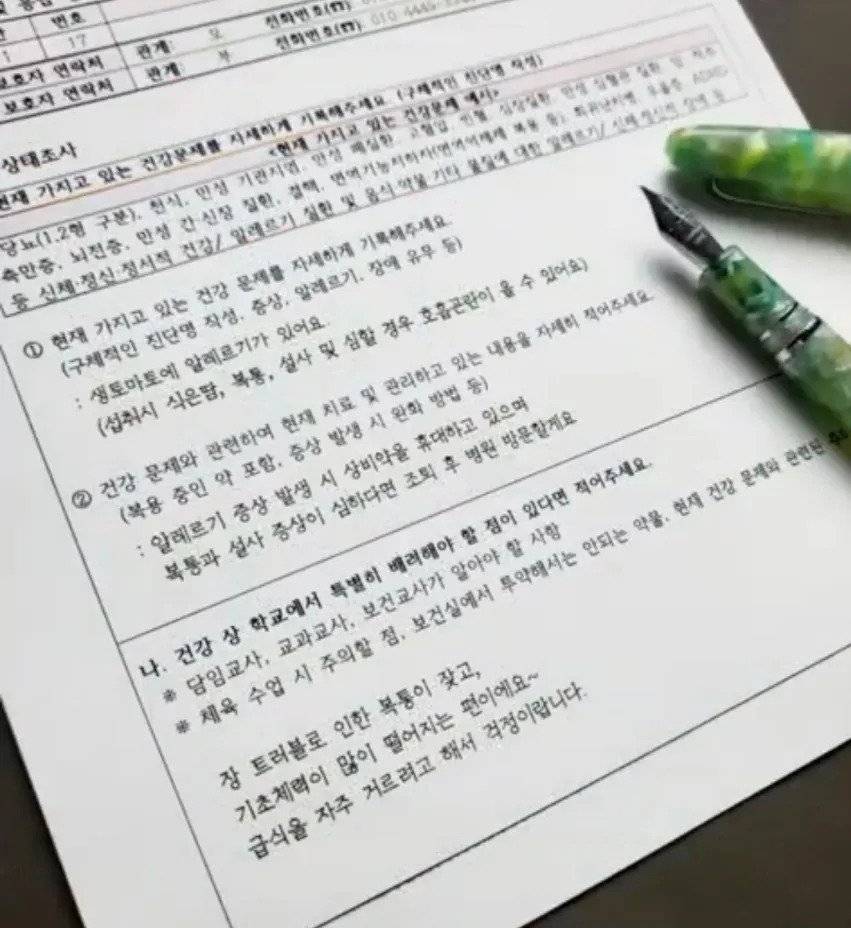 번호
17
관계: 모 전화번호(☎):
보호자 연락처 관계: 부 전화번호(☎): 010
보호자 연락처
상태조사
현재 가지고 있는 건강문제를 자세하게 기록해주세요. (구체적인 진단명 작성)
<현재 가지고 있는 건강문제 예시>
당뇨(1,2형 구분), 천식, 만성 기관지염, 만성 폐질환, 고혈압, 빈혈, 심장질환, 만성
측만증, 뇌전증, 만성 간·신장 질환, 결핵, 면역기능저하자(면역억제제 복용 등), 희귀난치병, 우울증, ADHD
등 신체·정신·정서적 건강/ 알레르기 질환 및 음식·약물·기타 물질에 대한 알레르기/ 신체·정신적 장애 등
① 현재 가지고 있는 건강 문제를 자세하게 기록해주세요.
(구체적인 진단명 작성, 증상, 알레르기, 장애 유무 등)
: 생토마토에 알레르기가 있어요.
(섭취시 식은땀, 복통, 설사 및 심할 경우 호흡곤란이 올 수 있어요)
② 건강 문제와 관련하여 현재 치료 및 관리하고 있는 내용을 자세히 적어주세요.
(복용 중인 약 포함, 증상 발생 시 완화 방법 등)
: 알레르기 증상 발생 시 상비약을 휴대하고 있으며
복통과 설사 증상이 심하다면 조퇴 후 병원 방문할게요
나. 건강 상 학교에서 특별히 배려해야 할 점이 있다면 적어주세요.
※ 담임교사, 교과교사, 보건교사가 알아야 할 사항
※ 체육 수업 시 주의할 점, 보건실에서 투약해서는 안되는 약물, 현재 건강 문제와 관련된
장 트러블로 인한 복통이 잦고,
기초체력이 많이 떨어지는 편이에요~
급식을 자주 거르려고 해서 걱정이랍니다.